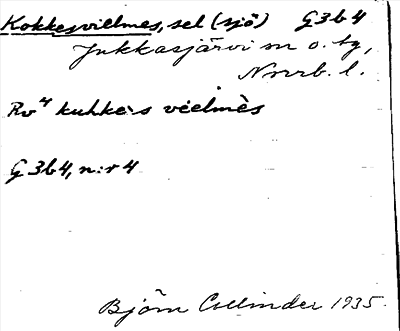 Kokkesvielmes, sel (sjö) G3b4
Jukkasjärvi sn o. tg,
Nrrb. l.
Rv⁴ kuhkès vèelmès
G3b4, n:r 4
Björn Collinder 1935.